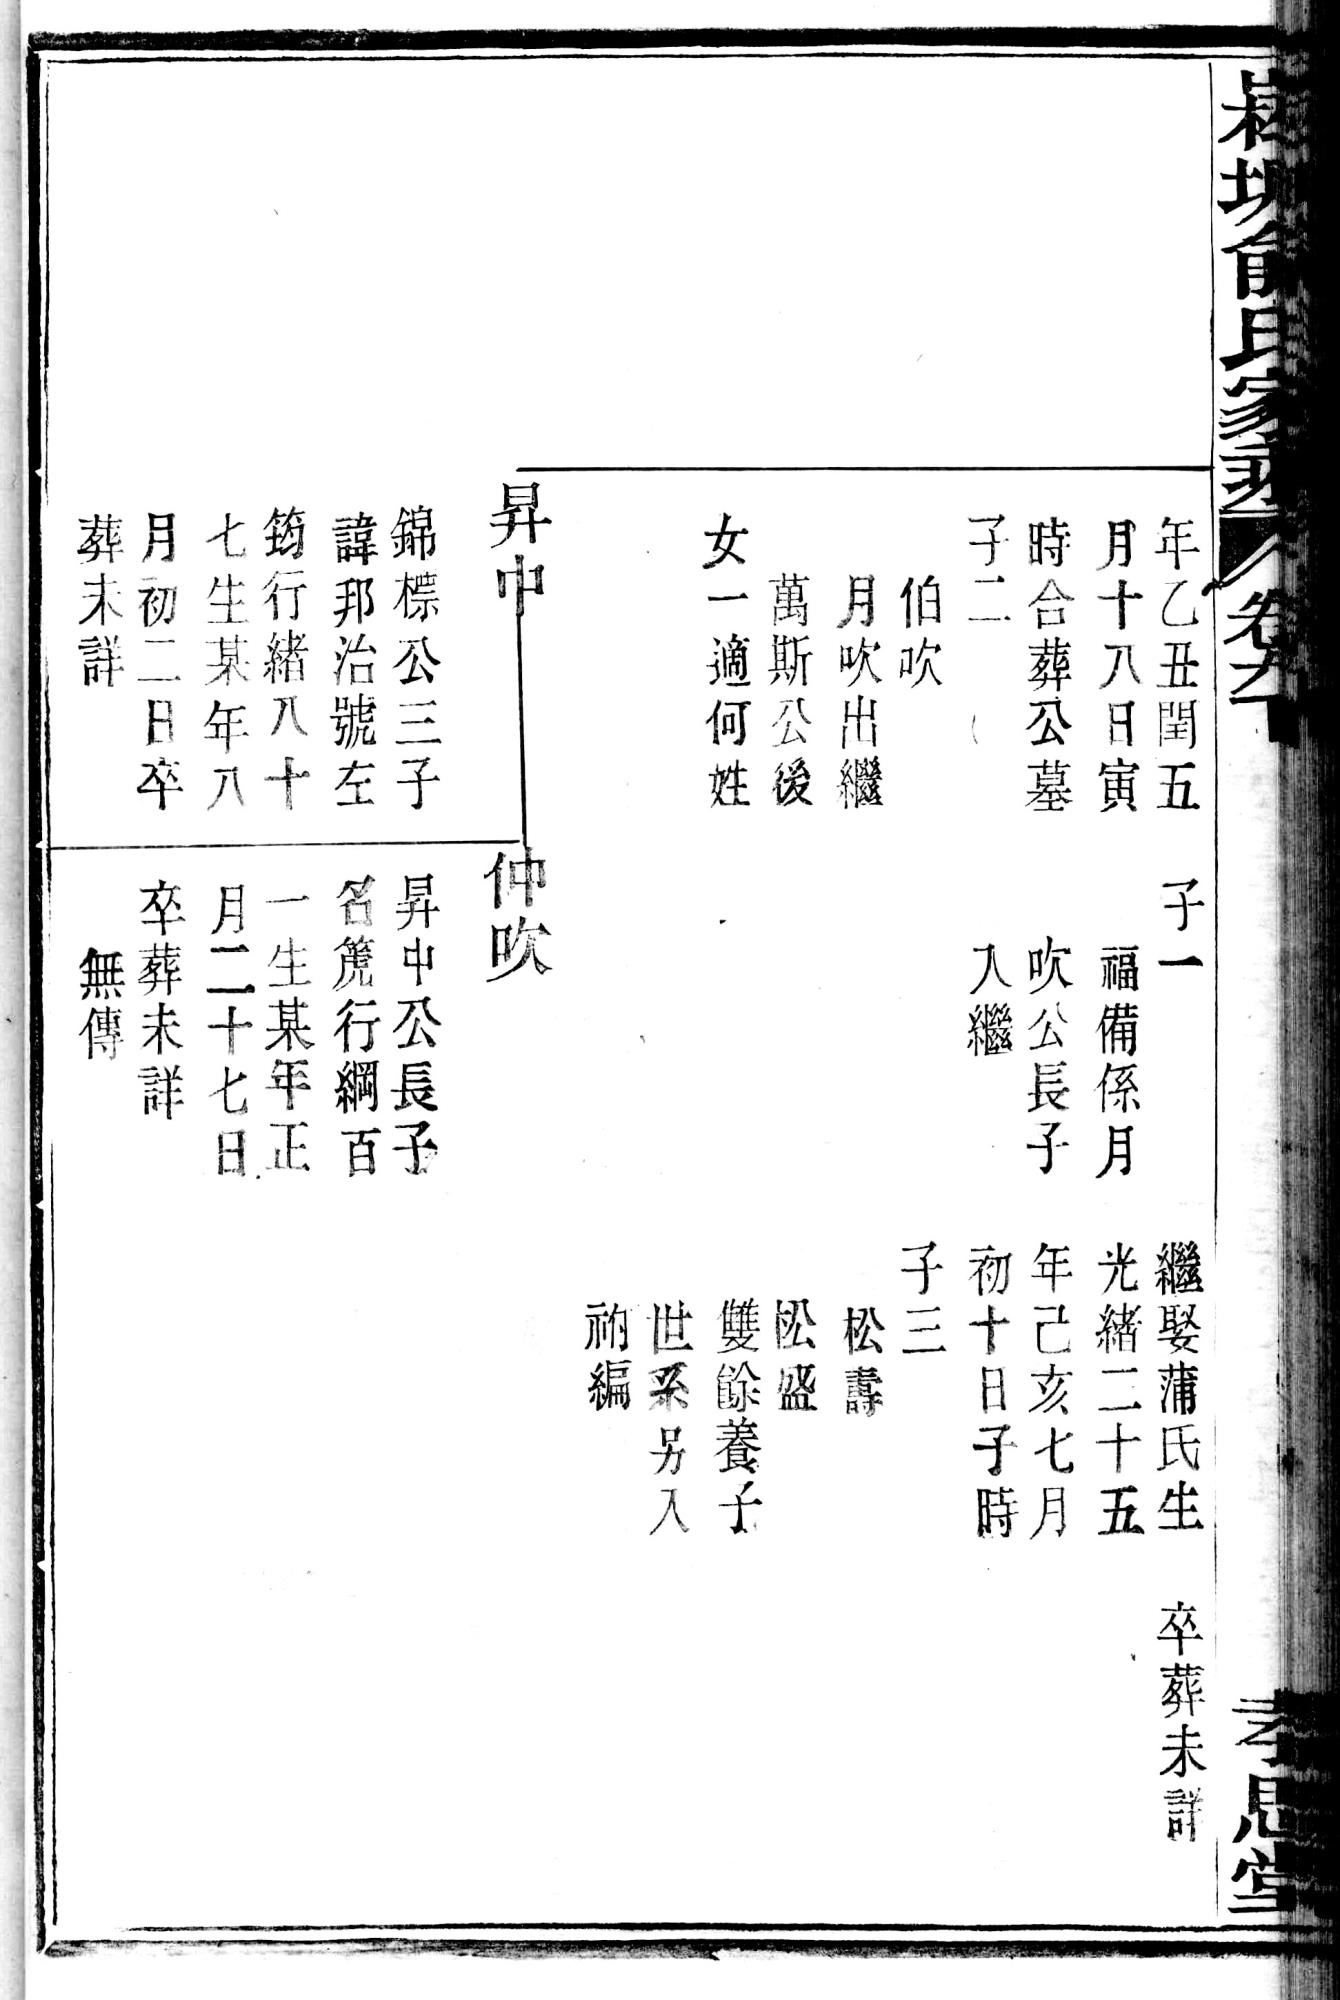 俞氏家乘 卷六下
孝思堂
年乙丑閏五
月十八日寅
時合葬公墓
子二
伯吹
月吹出繼
萬斯公後
女一適何姓
昇中
錦標公三子
諱邦治號左
筠行緒八十
七生某年八
月初二日卒
葬未詳
子一
福備係月
吹公長子
入繼
仲吹
昇中公長子
名篪行綱百
一生某年正
月二十七日
卒葬未詳
無傳
繼娶蒲氏生
光緒二十五
年己亥七月
初十日子時
子三
松壽
松盛
雙餘養子
世系另入
祔編
卒葬未詳